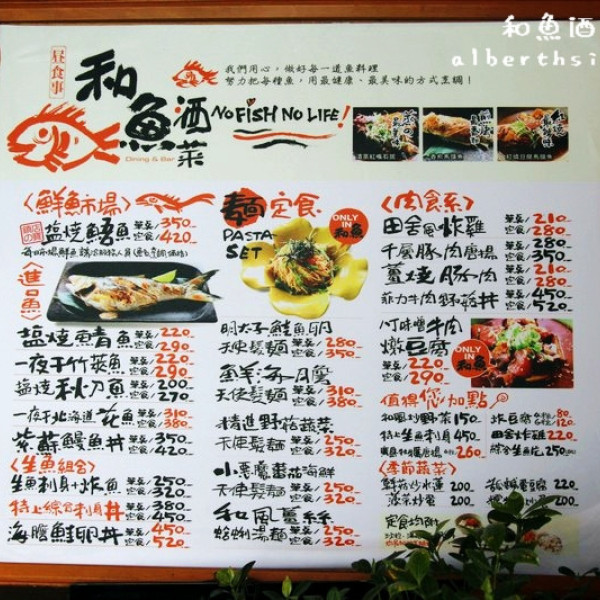 和魚酒
alberthsi
昼食事
和魚酒菜
Dining & Bar
我們用心，做好每一道魚料理
努力把每種魚，用最健康、最美味的方式烹調！
NO FISH NO LIFE!
〈鮮魚市場〉
鹽燒鱔魚 單点/350 定食/420
〈進口魚〉
鹽燒鯖魚 單点/220 定食/290
一夜干竹筴魚 單点/220 定食/290
鹽燒秋刀魚 單点/200 定食/270
一夜干北海道花魚 單点/310 定食/380
紫蘇鰻魚丼 單点/350 定食/420
〈生魚組合〉
生魚刺身+炸魚 單点/250 定食/320
特上綜合刺身丼 單点/380 定食/450
海膽鮭卵丼 單点/450 定食/520
麵定食
PASTA SET
ONLY IN 和魚
明太子鮭魚卵
天使髮麵 單点/280 定食/350
天使髮麵 單点/310 定食/380
精進野菇蔬菜
天使髮麵 單点/250 定食/320
小惡魔番茄海鮮
天使髮麵 單点/250 定食/320
和風薑絲
蛤蜊湯麵 單点/250 定食/320
〈肉食系〉
田舍風炸雞 單点/210 定食/280
千層豚肉唐揚 單点/280 定食/350
薑燒豚肉 單点/210 定食/280
菲力牛肉野菇丼 單点/450 定食/520
八丁味噌牛肉
燉豆腐
單点/220
定食/290
ONLY IN 和魚
值得您加點
和風炒野菜150
炸豆腐
特上生魚刺身450
田舍炸雞220
260
綜合生魚片250
〈季節蔬菜〉
鮮菇炒水蓮 200
200
定食均附